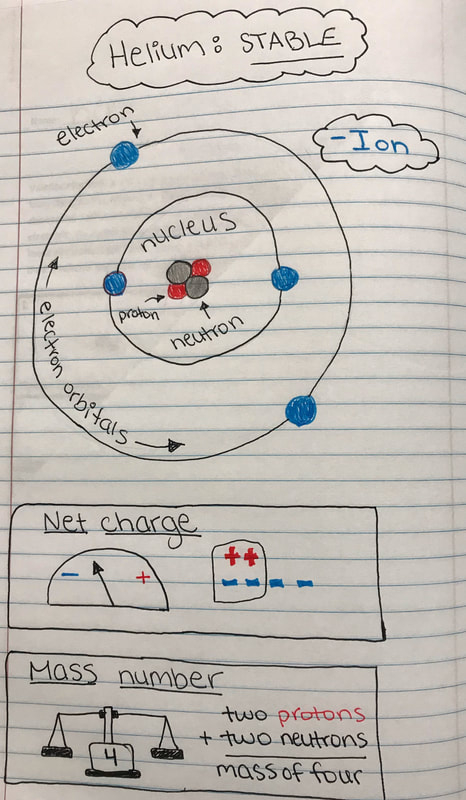 Helium: STABLE
electron
-Ion
nucleus
proton
neutron
electron orbitals
Net charge
- +
++
- - - -
Mass number
two protons
+ two neutrons
4
mass of four